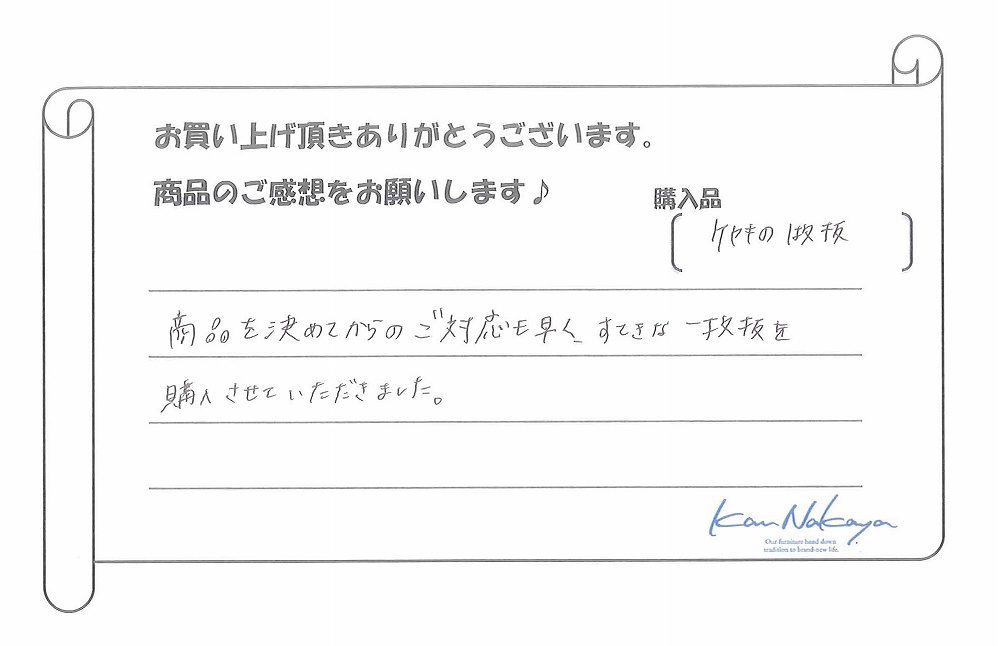 お買い上げ頂きありがとうございます。
商品のご感想をお願いします♪
購入品
ケヤキの1枚板
商品を決めてからのご対応も早く、すてきな一枚板を
購入させていただきました。
Kan Nakaya
Our furniture hand down
tradition to brand-new life.